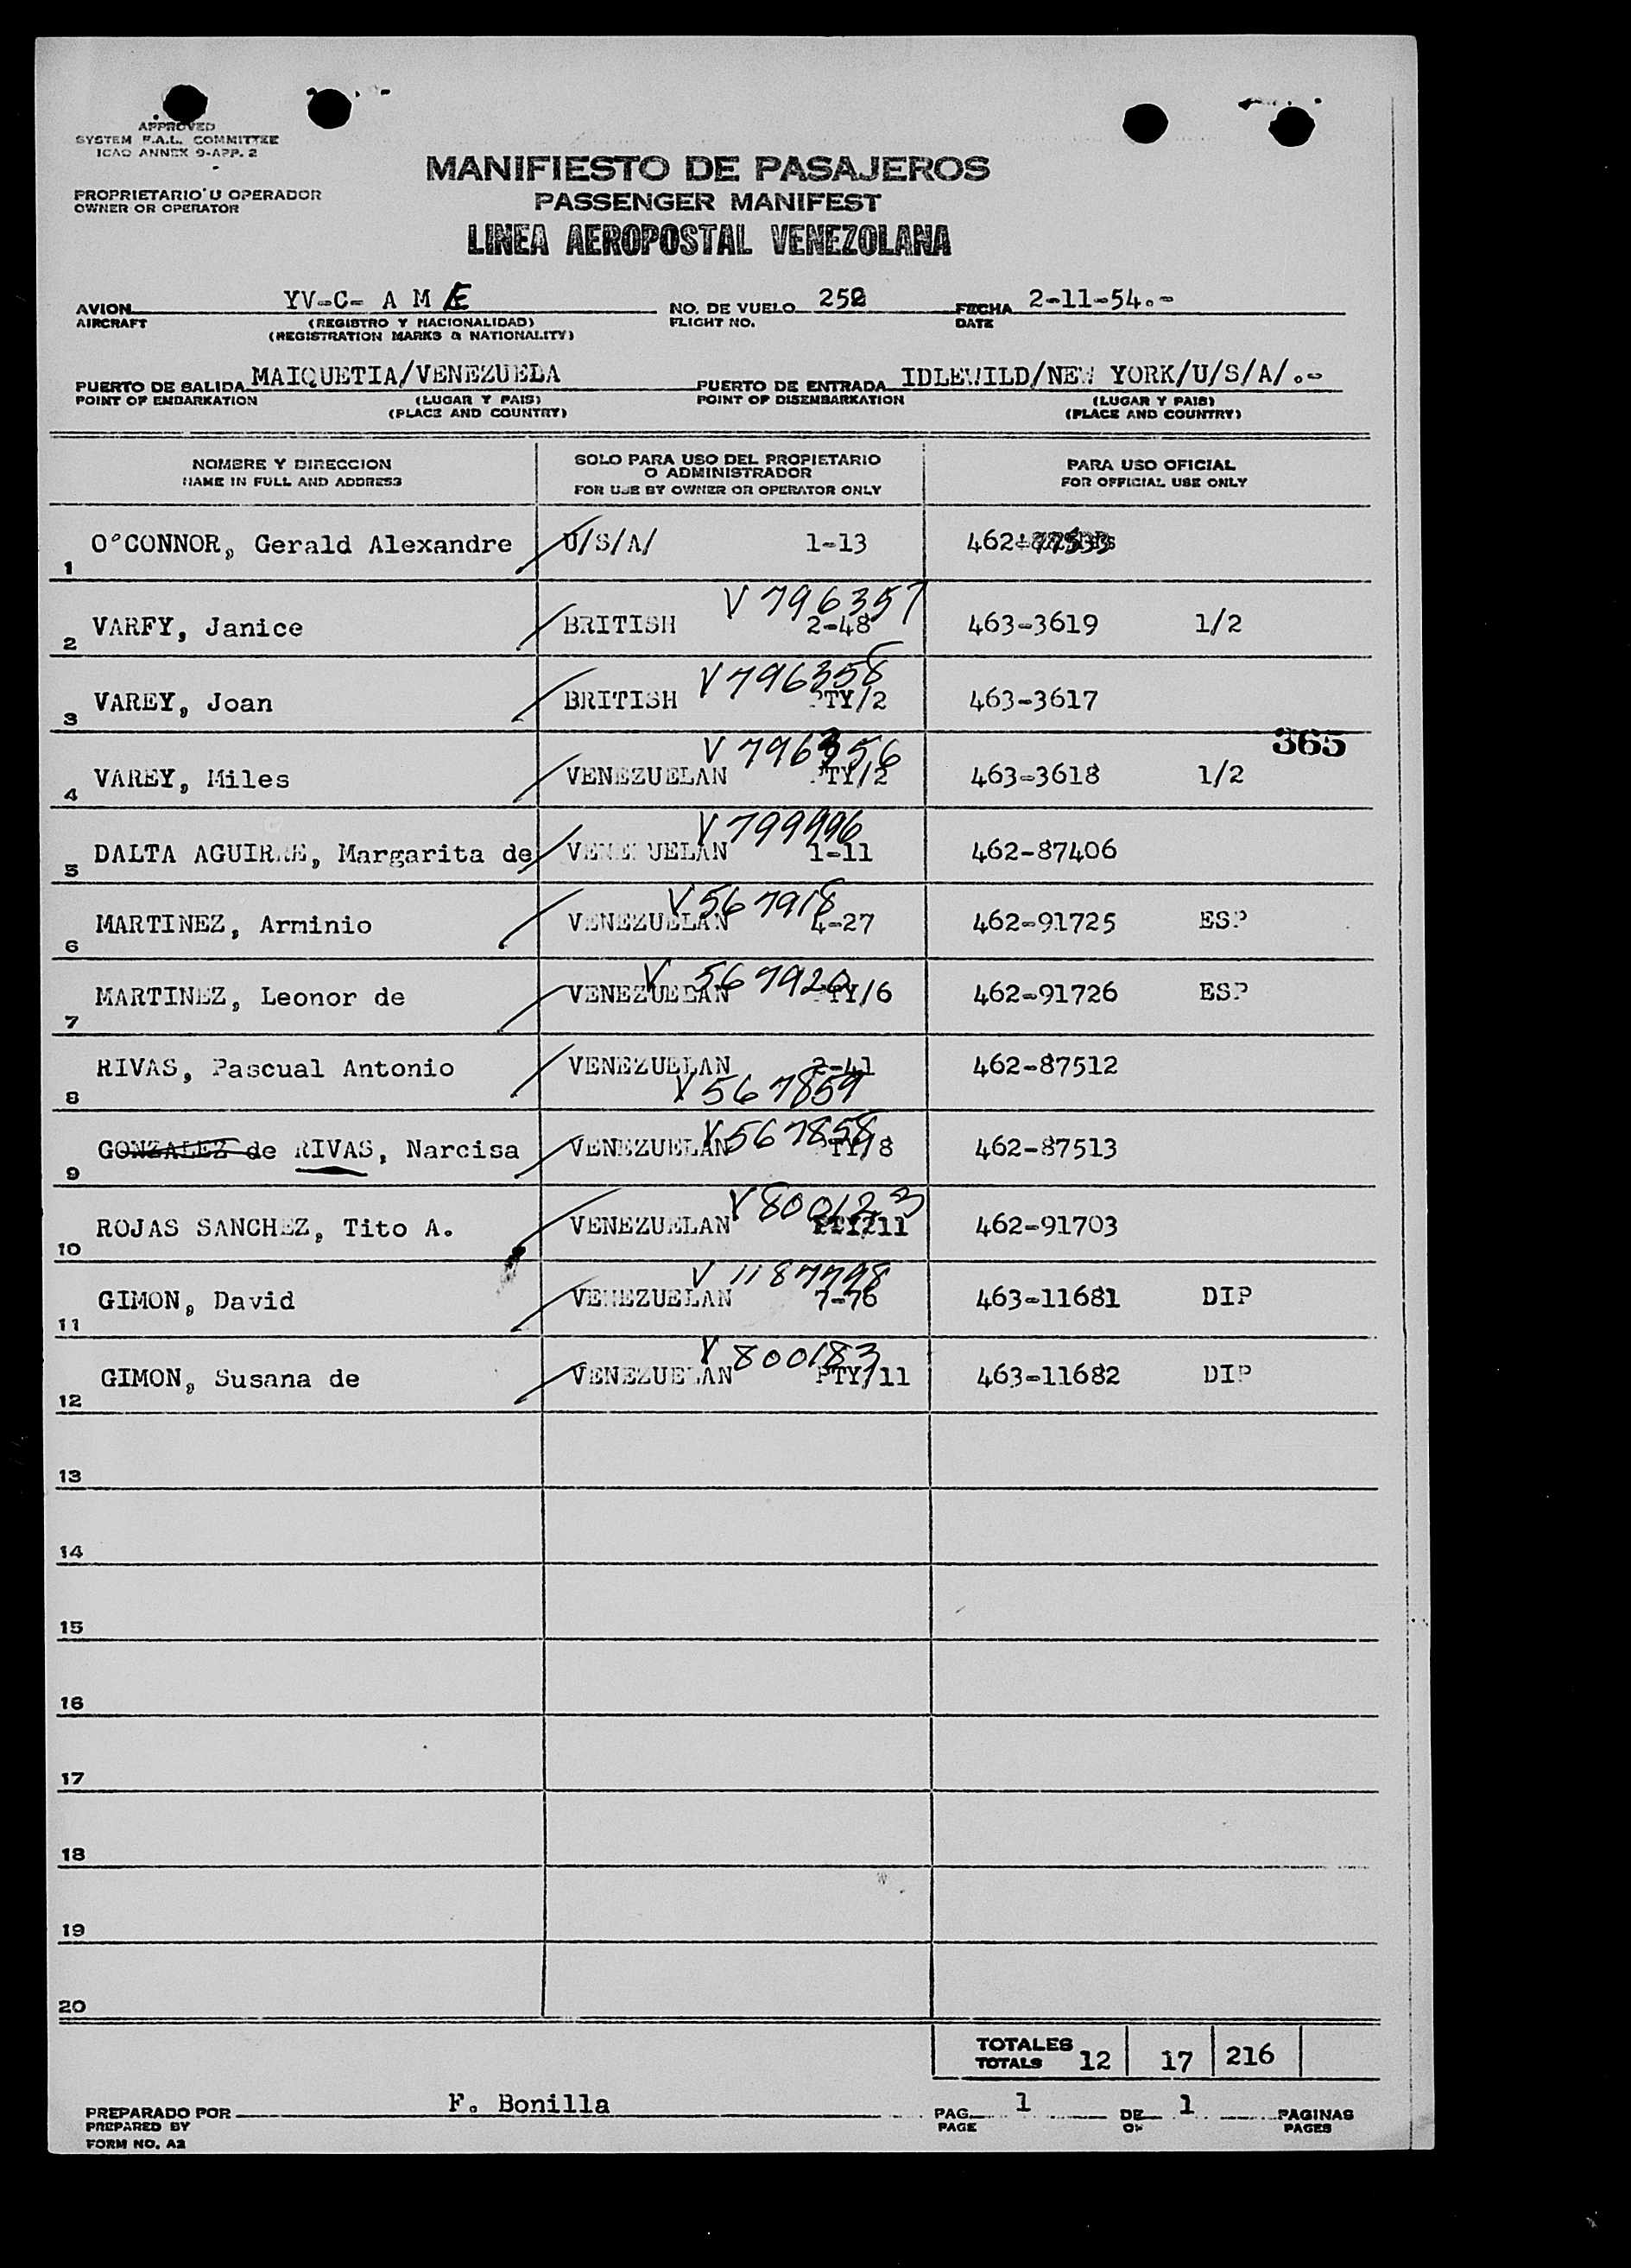 APPROVED
SYSTEM F.A.L. COMMITTEE
ICAO ANNEX 9-APP. 2
PROPRIETARIO U OPERADOR
OWNER OR OPERATOR
MANIFIESTO DE PASAJEROS
PASSENGER MANIFEST
LINEA AEROPOSTAL VENEZOLANA
AVION YV-C- A M E NO. DE VUELO 252 FECHA 2-11-54.-
AIRCRAFT (REGISTRO Y NACIONALIDAD) FLIGHT NO. DATE
(REGISTRATION MARKS & NATIONALITY)
PUERTO DE SALIDA MAIQUETIA/VENEZUELA PUERTO DE ENTRADA IDLEWILD/NEW YORK/U/S/A/.-
POINT OF EMBARKATION (LUGAR Y PAIS) POINT OF DISEMBARKATION (LUGAR Y PAIS)
(PLACE AND COUNTRY) (PLACE AND COUNTRY)
NOMBRE Y DIRECCION SOLO PARA USO DEL PROPIETARIO O ADMINISTRADOR PARA USO OFICIAL
NAME IN FULL AND ADDRESS FOR USE BY OWNER OR OPERATOR ONLY FOR OFFICIAL USE ONLY
1 O'CONNOR, Gerald Alexandre U/S/A/ 1-13 462-
V 796357
2 VARFY, Janice BRITISH 2-48 463-3619 1/2
V 796358
3 VAREY, Joan BRITISH PTY/2 463-3617
365
V 796356
4 VAREY, Miles VENEZUELAN PTY/2 463-3618 1/2
5 DALTA AGUIRRE, Margarita de VENEZUELAN 1-11 462-87406
V 567918
6 MARTINEZ, Arminio VENEZUELAN 4-27 462-91725 ESP
V 567920
7 MARTINEZ, Leonor de VENEZUELAN PTY/6 462-91726 ESP
8 RIVAS, Pascual Antonio VENEZUELAN 2-41 462-87512
V 567859
V 567858
9 GONZALEZ de RIVAS, Narcisa VENEZUELAN PTY/8 462-87513
V 800123
10 ROJAS SANCHEZ, Tito A. VENEZUELAN 462-91703
V 1187798
11 GIMON, David VENEZUELAN 7-76 463-11681 DIP
V 800183
12 GIMON, Susana de VENEZUELAN PTY/11 463-11682 DIP
13
14
15
16
17
18
19
20
TOTALES
TOTALS 12 17 216
PREPARADO POR F. Bonilla PAG. 1 DE 1 PAGINAS
PREPARED BY PAGE OF PAGES
FORM NO. A2